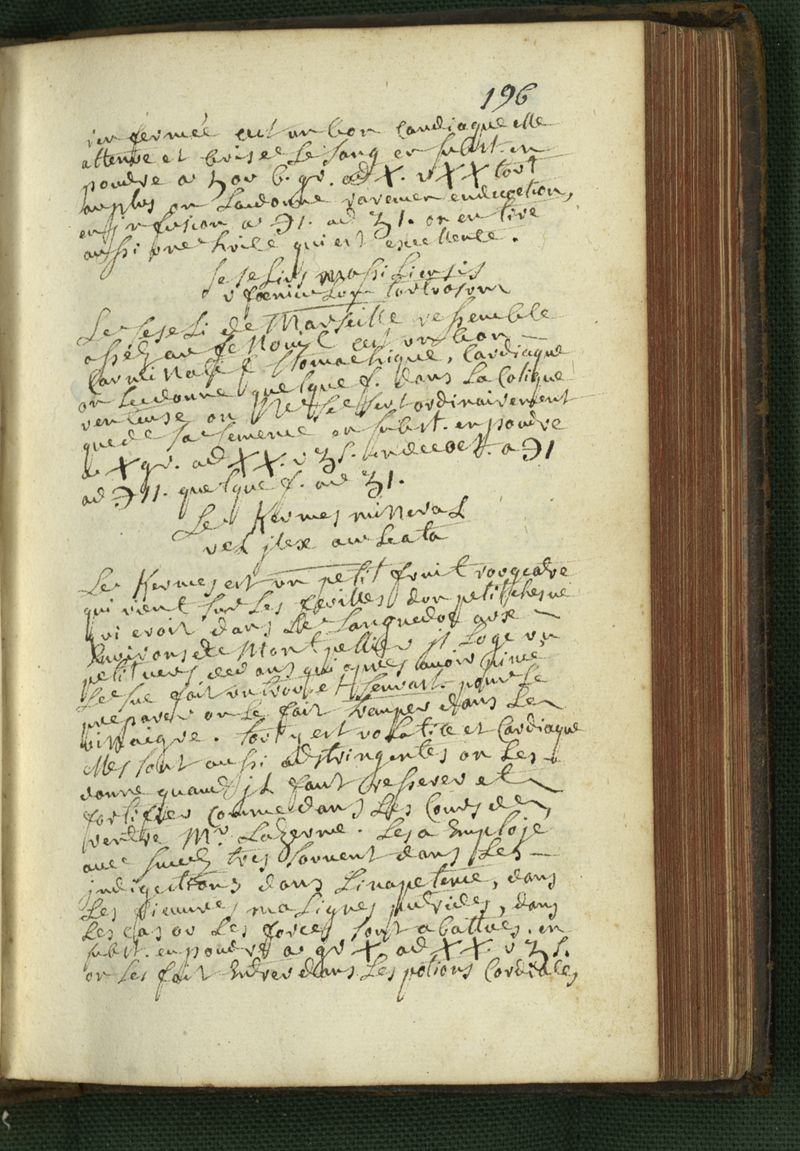 196
renfermée est un bon Cardiaque elle
attenue et brise Le sang en subst. en
poudre a gr. ad X. v XX tout
au plus on La donne raremen en decoction,
en jnfusion a ℈1. ad ʒ1. on en tire
aussi une huile qui est excellente.
Seselius massiliensis
v foenicul tortuosum
Le Seseli de Marseille ressemble
assés au fenouil est un bon
Carminatif Stomachique, Cardiaque
on Le donne quelque f. dans La Colique
venteuse on Ne se sert ordinairement
que de Sa Semence en subst. en poudre
a X gr. ad XX. v ʒ s. en decoct. a ℈1
ad ℈11. quelque f. ad ʒ1.
Le Kermes mineral
vel jlex aculeata
Le Kermes est un petit fruit rougeatre
qui vient sur Les feuilles d'un petit chesne
qui croit dans Le Languedoc aux
Environs de Montpellier jl Loge un
petit vers dedans qui apres avoir
Le suc fait un trou et s'en vat. pour Le
preparer on Le fait tremper dans Le
vinaigre. tout y est volatile et Cardiaque
Elles sont aussi adstringentes on Les
donne quand jl faut resserer et
fortifier comme dans Les Cours de
ventre Mr. Lazerme. Les a Employé
avec succez tres souvent dans Les
jndigestions dans L'inapetence, dans
Les fieuvres malignes putrides, dans
Les cas ou Les forces sont abattues. en
subst. en poudre a gr X ad XX. v ʒ s.
on Les fait Entrer dans Les potions Cordiales